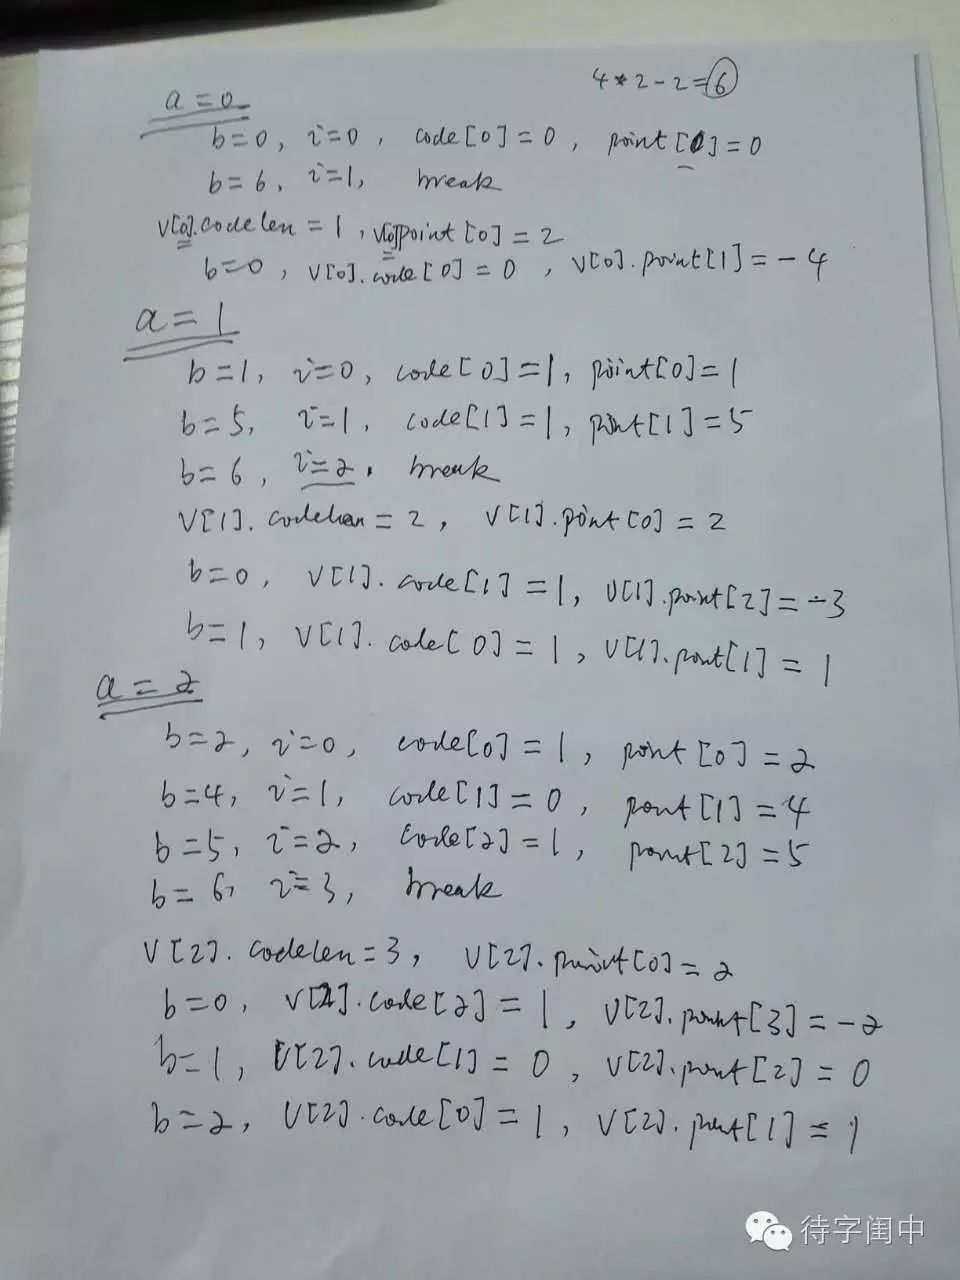 4*2-2=6
a=0
b=0, i=0, code[0]=0, point[0]=0
b=6, i=1, break
v[0].codelen=1, v[0]point[0]=2
b=0, v[0].code[0]=0, v[0].point[1]=-4
a=1
b=1, i=0, code[0]=1, point[0]=1
b=5, i=1, code[1]=1, point[1]=5
b=6, i=2, break
v[1].codelen=2, v[1].point[0]=2
b=0, v[1].code[1]=1, v[1].point[2]=-3
b=1, v[1].code[0]=1, v[1].point[1]=1
a=2
b=2, i=0, code[0]=1, point[0]=2
b=4, i=1, code[1]=0, point[1]=4
b=5, i=2, code[2]=1, point[2]=5
b=6, i=3, break
v[2].codelen=3, v[2].point[0]=2
b=0, v[2].code[2]=1, v[2].point[3]=-2
b=1, v[2].code[1]=0, v[2].point[2]=0
b=2, v[2].code[0]=1, v[2].point[1]=1
待字闺中